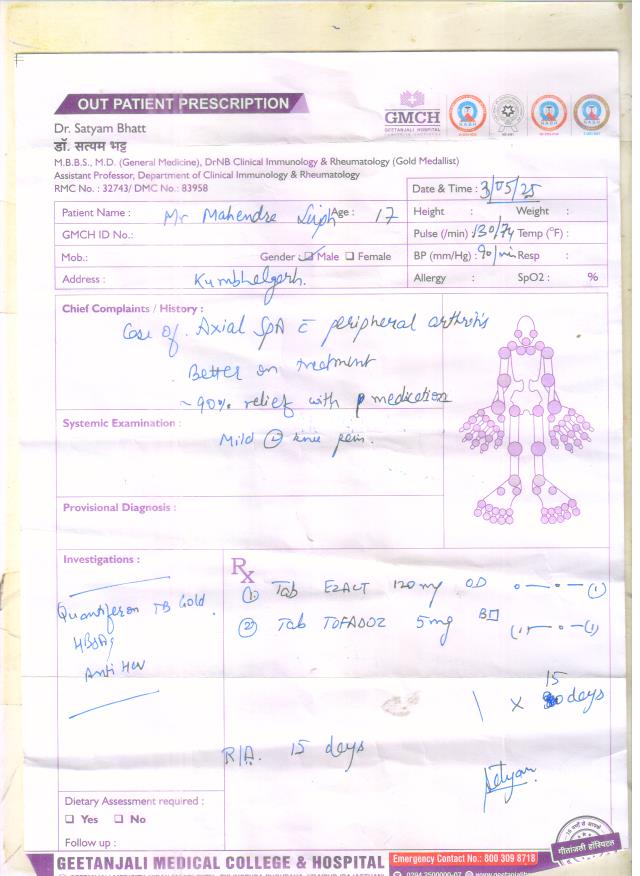 OUT PATIENT PRESCRIPTION
GMCH
GEETANJALI HOSPITAL
Dr. Satyam Bhatt
डॉ. सत्यम भट्ट
M.B.B.S., M.D. (General Medicine), DrNB Clinical Immunology & Rheumatology (Gold Medallist)
Assistant Professor, Department of Clinical Immunology & Rheumatology
RMC No. : 32743/ DMC No. : 83958
Date & Time : 3/05/25
Patient Name : Mr Mahendre Age : 17
Height : Weight :
GMCH ID No.:
Pulse (/min) : 130/74 Temp (°F) :
Mob.: Gender : Male Female
BP (mm/Hg) : 90/min Resp :
Address : Kumbhalgarh.
Allergy : SpO2 : %
Chief Complaints / History :
Case of Axial SpA c̄ peripheral arthritis
Better on treatment
~ 90% relief with medication
Systemic Examination :
Mild knee pain.
Provisional Diagnosis :
Investigations :
Quantiferon TB Gold
HBSAg
Anti HCV
Rx
① Tab EZACT 120 mg OD 0 — 0 — (1)
② Tab TOFADOZ 5 mg BD (1) — 0 — (1)
x 15 days
R/A. 15 days
Satyam
Dietary Assessment required :
Yes No
Follow up :
गीतांजली हॉस्पिटल
GEETANJALI MEDICAL COLLEGE & HOSPITAL
Emergency Contact No.: 800 309 8718
0294 2500000-07